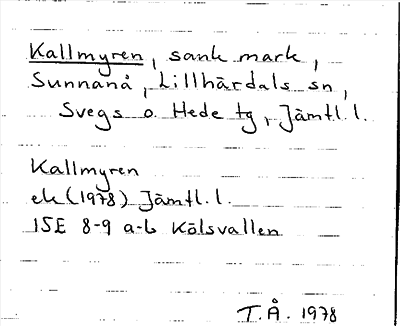 Kallmyren, sank mark,
Sunnanå, Lillhärdals sn,
Svegs o. Hede tg, Jämtl. l.
Kallmyren
ek (1978) Jämtl. l.
15E 8-9 a-b Kölsvallen
T.Å. 1978